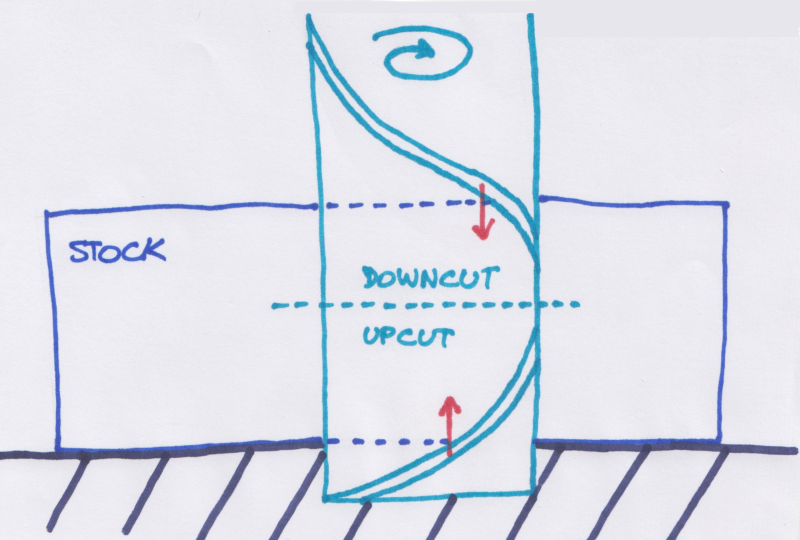 STOCK
DOWNCUT
UPCUT